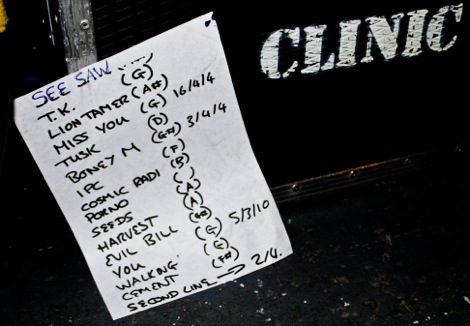 CLINIC
SEE SAW
T.K. (G)
LION TAMER (A#)
MISS YOU (G) 16/4/4
TUSK (D)
BONEY M (G#) 3/4/4
IPC (F)
COSMIC RADI (B)
PORNO (,)
SEEDS (A)
HARVEST (A)
EVIL BILL
YOU (G) 5/3/10
WALKING (G)
CEMENT (F#)
SECOND LINE → 2/4.